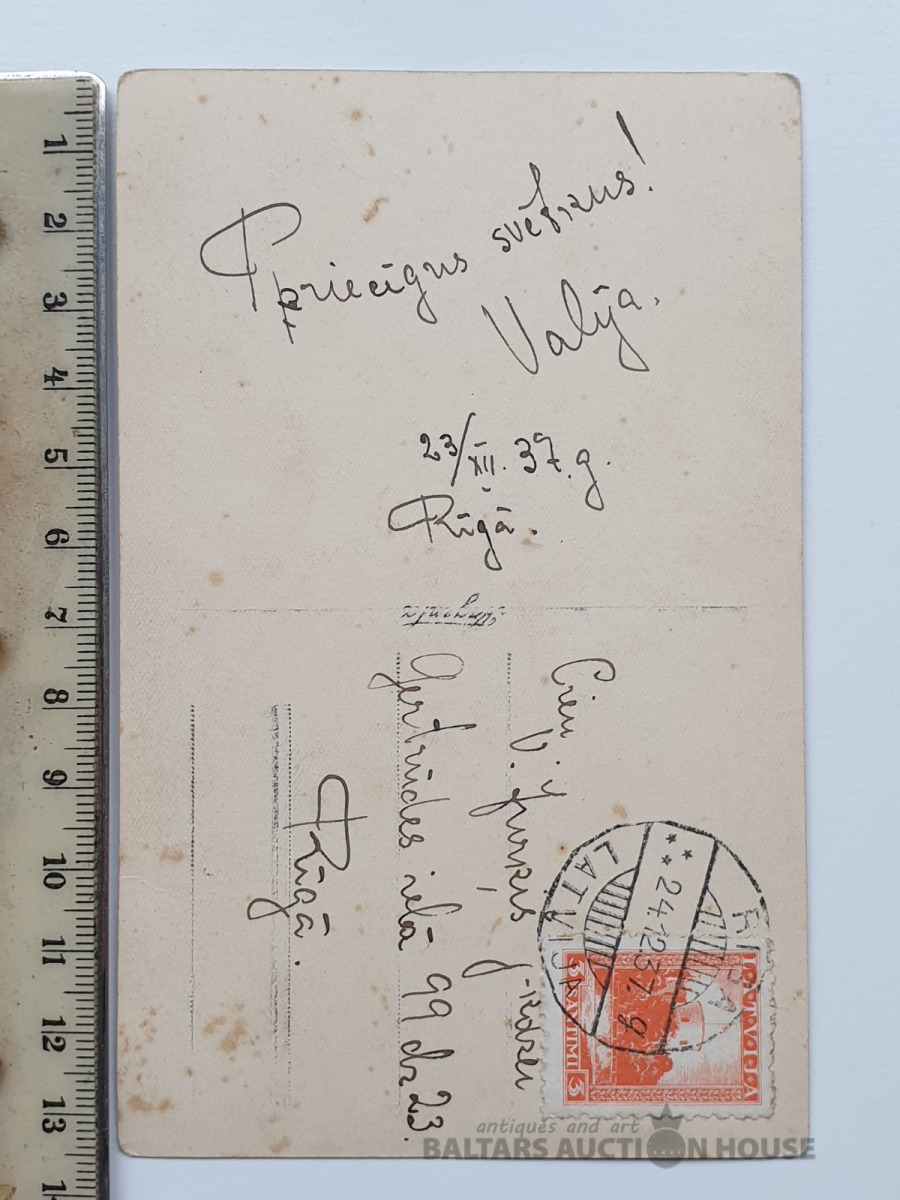 Priecīgus svētkus!
Valija.
23/XII. 37. g.
Rīgā.
Cien. V. Jurķis j-kdzei
Ģertrūdes ielā 99 dz 23.
Rīgā.
RIGA
LATVIJA
24.12.37. g
LATVIJA
3 SANTIMI 3
1
2
3
4
5
6
7
8
9
10
11
12
13
antiques and art
BALTARS AUCTION HOUSE